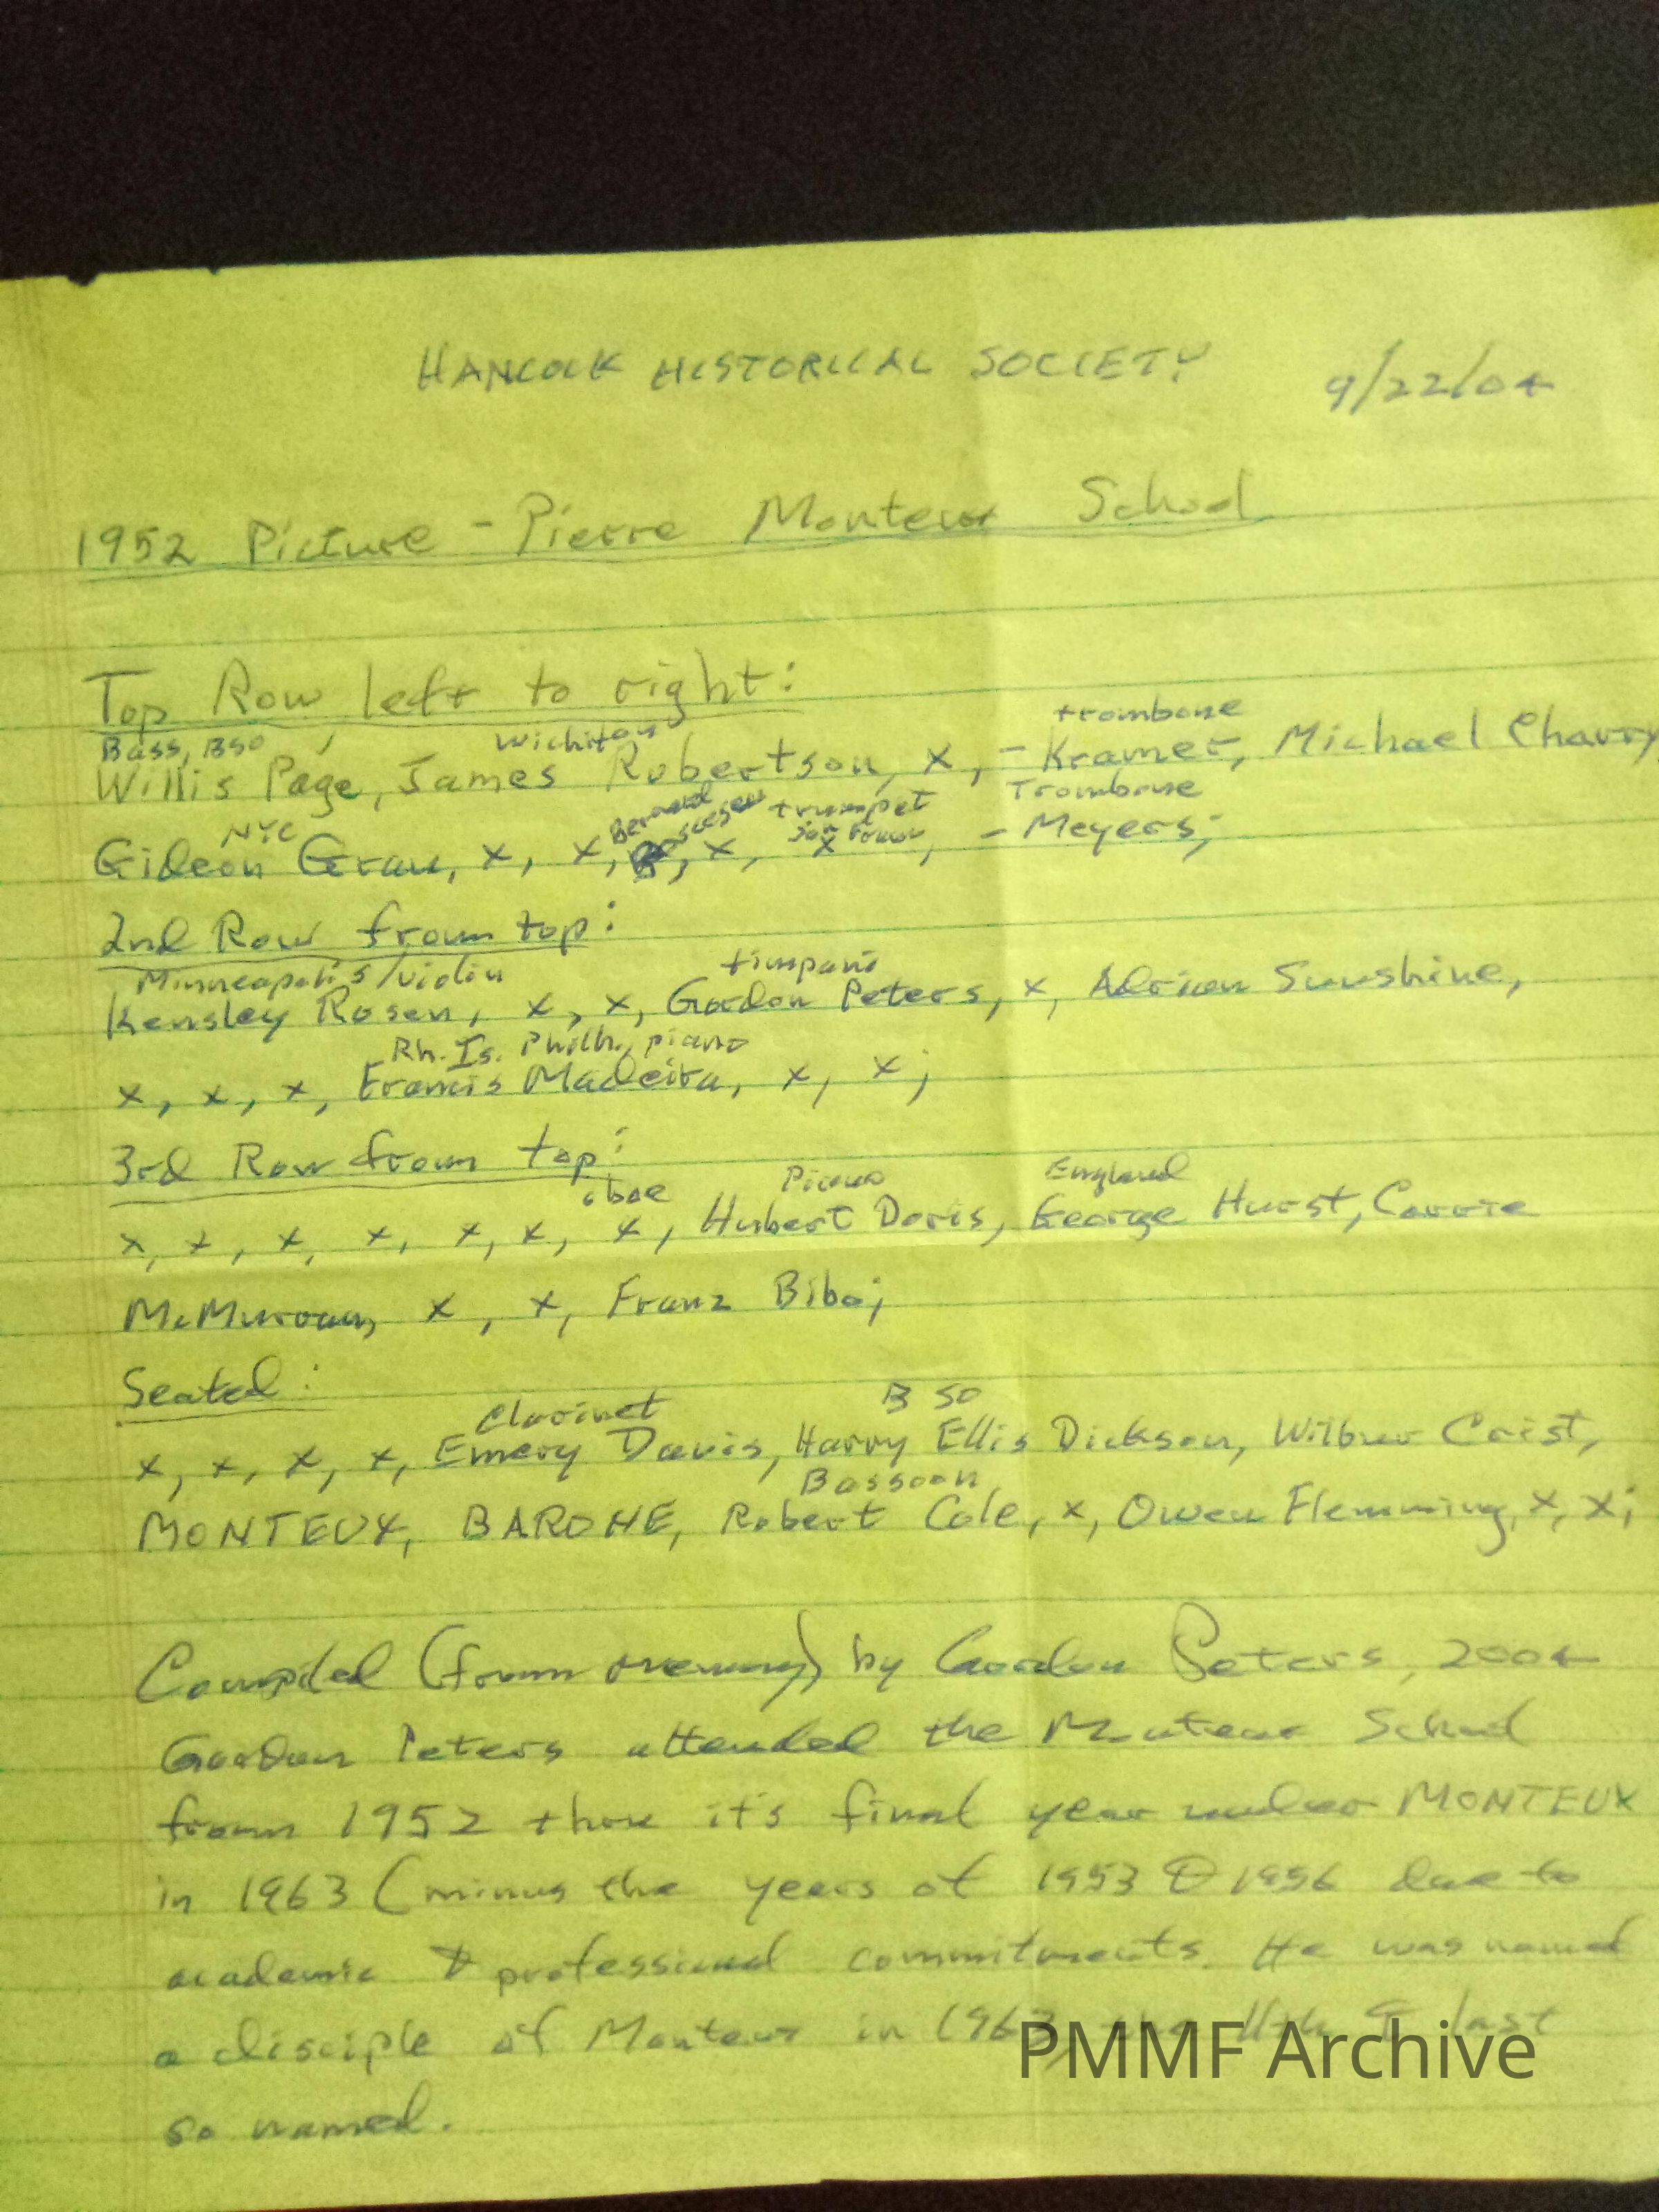 HANCOCK HISTORICAL SOCIETY 9/22/04
1952 Picture - Pierre Monteux School
Top Row left to right:
Bass, BSO Wichita trombone
Willis Page, James Robertson, x, - Kramer, Michael Charry
NYC Bernard trumpet Trombone
San Fran
Gideon Grau, x, x, x, x, - Meyers;
2nd Row from top:
Minneapolis/violin timpani
Kensley Rosen, x, x, Gordon Peters, x, Adrian Sunshine,
Rh. Is. Philh., piano
x, x, x, Francis Madeira, x, x;
3rd Row from top:
oboe Piano England
x, x, x, x, x, x, x, Hubert Doris, George Hurst, Corrie
McMurray, x, x, Franz Bibo;
Seated:
Clarinet BSO
x, x, x, x, Emery Davis, Harry Ellis Dickson, Wilbur Crist,
Bassoon
MONTEUX, BARONE, Robert Cole, x, Owen Flemming, x, x;
Compiled (from memory) by Gordon Peters, 2004
Gordon Peters attended the Monteux School
from 1952 thru it's final year under MONTEUX
in 1963 (minus the years of 1953 & 1956 due to
academic & professional commitments. He was named
a disciple of Monteux in 1963, the 11th & last
so named.
PMMF Archive